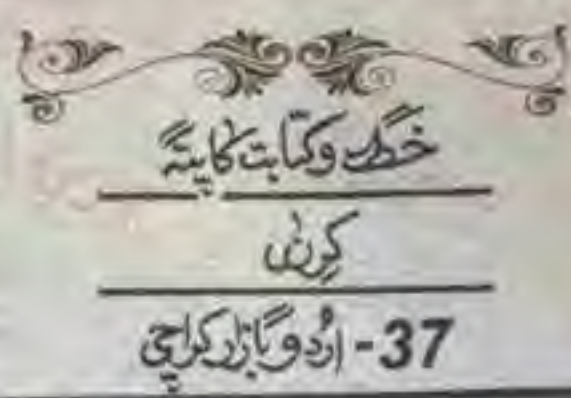 خط وکتابت کا پتہ
کرن
37- اردو بازار کراچی